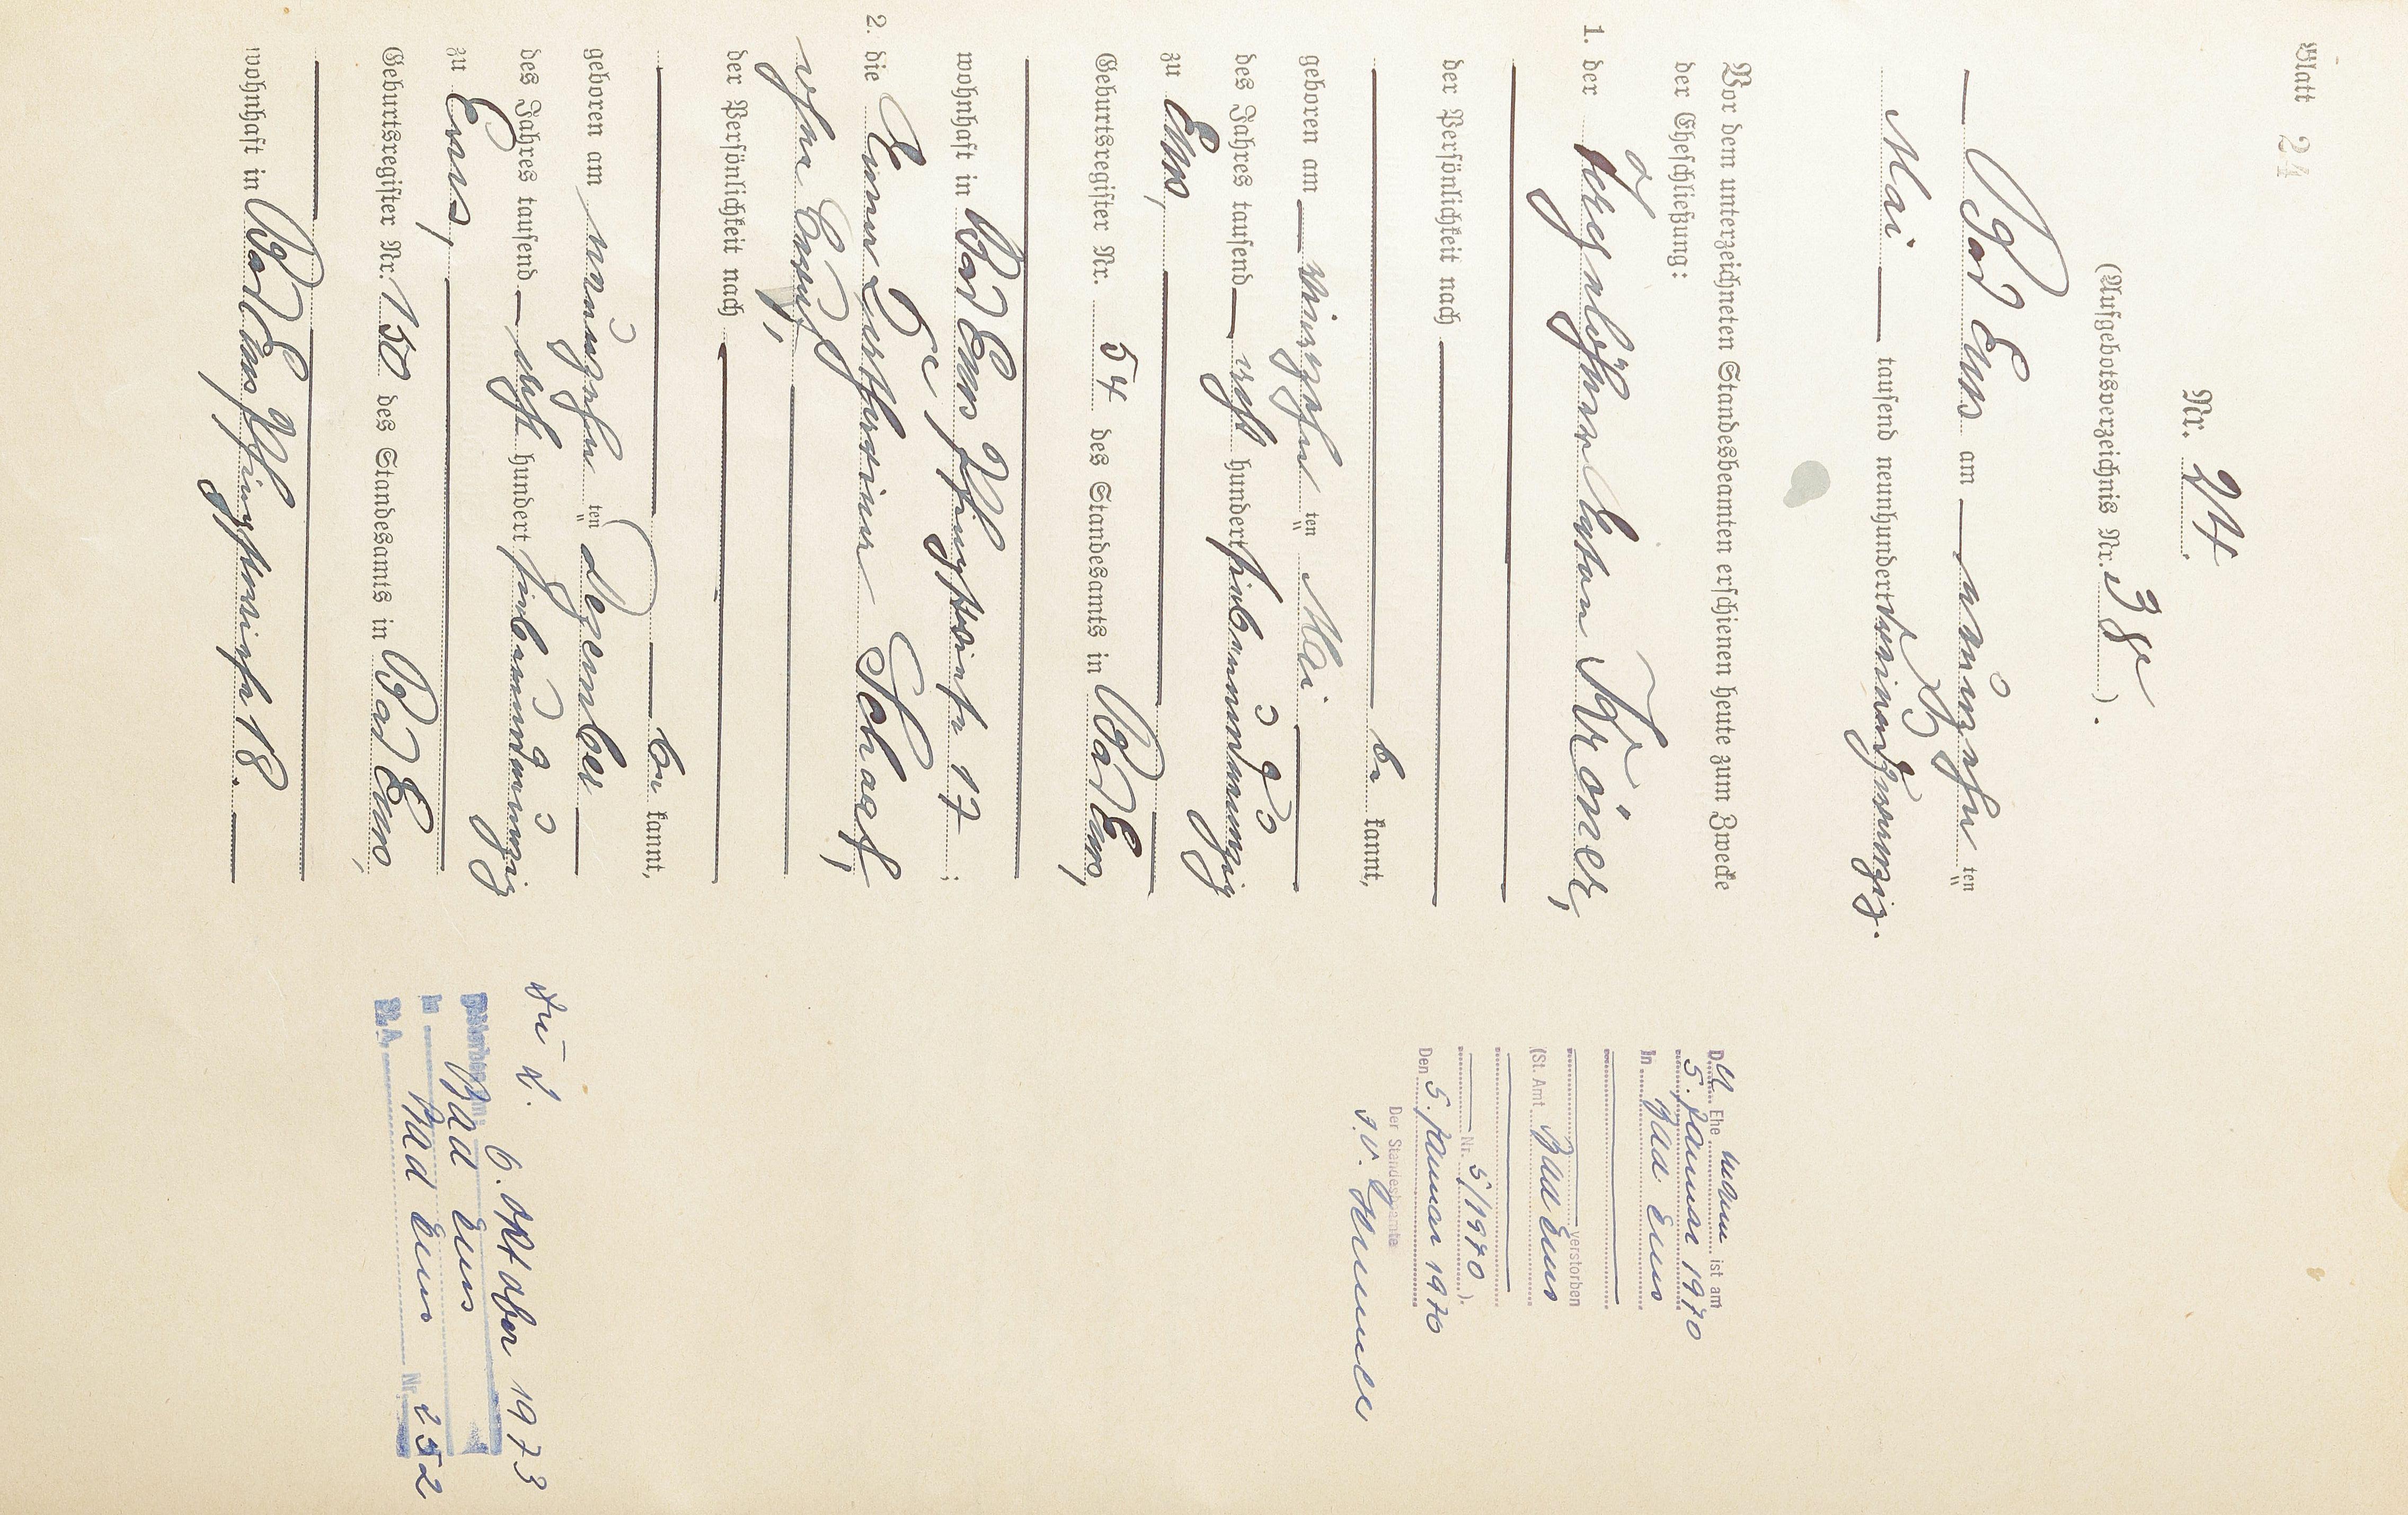 Blatt 24
Nr. 24.
(Aufgebotsverzeichnis Nr. 38).
Bad Ems am neunzehnten
Mai tausend neunhundert dreiundzwanzig.
Vor dem unterzeichneten Standesbeamten erschienen heute zum Zwecke
der Eheschließung:
1. der Tagelöhner Anton Kröner,
der Persönlichkeit nach
be kannt,
geboren am vierzehnten Mai
des Jahres tausend acht hundert siebenundneunzig
zu Ems,
Geburtsregister Nr. 54 des Standesamts in Bad Ems,
wohnhaft in Bad Ems, Pfingstwiese 17;
2. die Emma Katharina Schaaf,
ohne Beruf,
der Persönlichkeit nach
be kannt,
geboren am neunzehnten Dezember
des Jahres tausend acht hundert siebenundneunzig
zu Ems,
Geburtsregister Nr. 150 des Standesamts in Bad Ems,
wohnhaft in Bad Ems, Pfingstwiese 18.
Der Ehe mann ist am
5. Januar 1970
in Bad Ems
verstorben
(St. Amt Bad Ems
Nr. 5/1970).
Den 5. Januar 1970
Der Standesbeamte
I.V.
6. Oktober 1973
Bad Ems
in Bad Ems Nr. 252